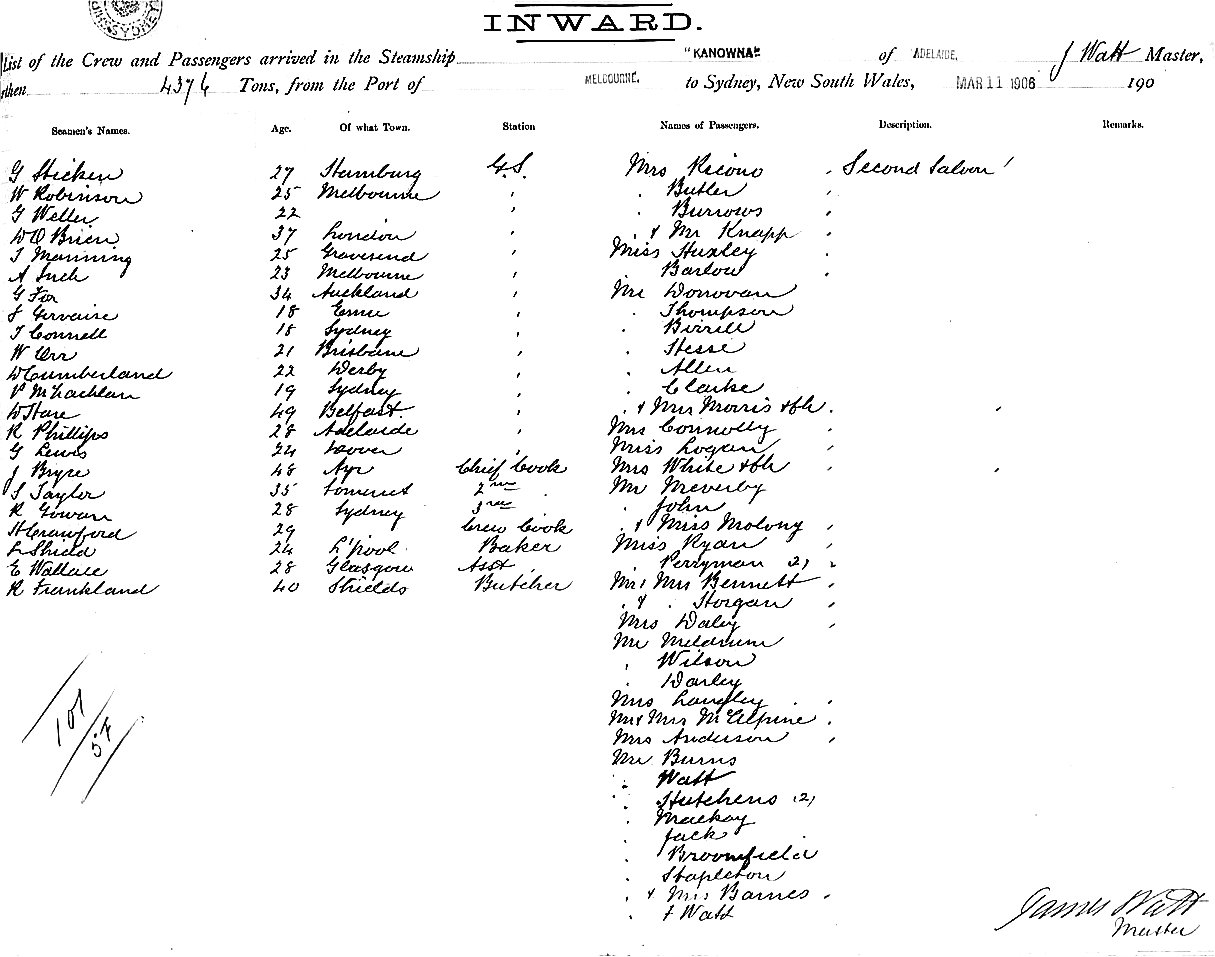 SYDNEY
INWARD.
List of the Crew and Passengers arrived in the Steamship "KANOWNA" of ADELAIDE, J Watt Master,
then 4376 Tons, from the Port of MELBOURNE. to Sydney, New South Wales, MAR 11 1906 190
Seamen's Names. Age. Of what Town. Station Names of Passengers. Description. Remarks.
27 Hamburg G.S. Mrs Second Saloon
W Robinson 25 Melbourne " " Butler "
G Weller 22 " " Burrows "
W O'Brien 37 London " " & Mr Knapp "
T Manning 25 Gravesend " Miss Huxley "
A Such 23 Melbourne " " Barlow "
G Fox 34 Auckland " Mr Donovan
Gervaise 18 " " Thompson
T Connell 18 Sydney " " Birrell
W Orr 21 Brisbane " " Hesse
W Cumberland 22 Derby " " Allen
P McLachlan 19 Sydney " " Clarke
W Hare 49 Belfast " " & Mrs Morris & Ch. "
R Phillips 28 Adelaide " Mrs Connolly "
G Lewis 24 Dover " Miss Logan "
J Bryce 48 Ayr Chief Cook Mrs White & Ch "
S Taylor 35 Somerset 2nd " Mr Meverby
R Gowan 28 Sydney 3rd " John
H Crawford 29 Crew Cook " & Miss Molony "
L Shield 24 L'pool Baker Miss Ryan "
E Wallace 28 Glasgow Asst " Perryman (2) "
R Frankland 40 Shields Butcher Mr & Mrs Bennett "
" & " Horgan "
Mrs Daley "
Mr Meldrum
" Wilson
" Darley
Mrs Langley "
Mr & Mrs McAlpine "
Mrs Anderson "
Mr Burns
" Watt
" Hutchens (2)
" Mackay
" Jack
" Broomfield
" Stapleton
" & Mrs Barnes "
" Watt
107/54
James Watt
Master